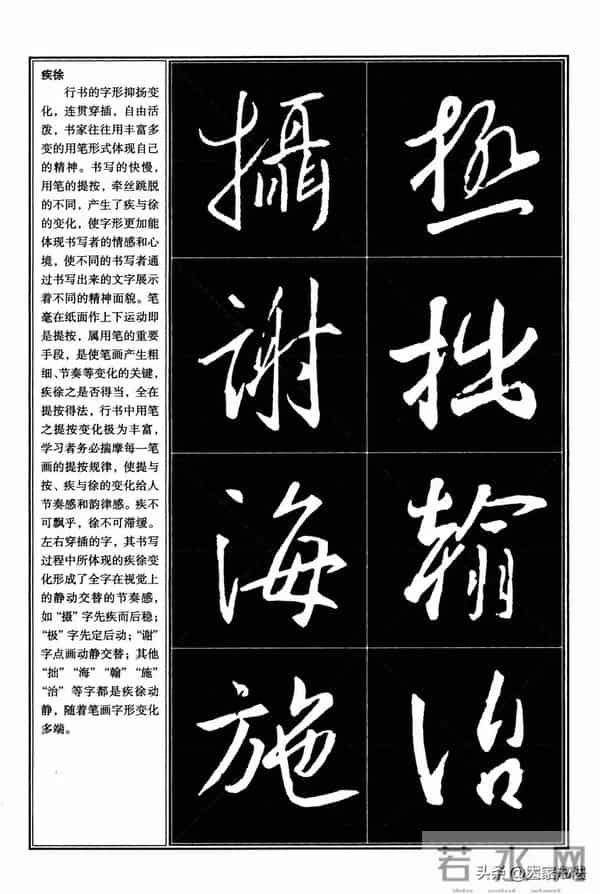 疾徐
行书的字形抑扬变
化，连贯穿插，自由活
泼，书家往往用丰富多
变的用笔形式体现自己
的精神。书写的快慢，
用笔的提按，牵丝跳脱
的不同，产生了疾与徐
的变化，使字形更加能
体现书写者的情感和心
境，使不同的书写者通
过书写出来的文字展示
着不同的精神面貌。笔
毫在纸面作上下运动即
是提按，属用笔的重要
手段，是使笔画产生粗
细、节奏等变化的关键，
疾徐之是否得当，全在
提按得法，行书中用笔
之提按变化极为丰富，
学习者务必揣摩每一笔
画的提按规律，使提与
按、疾与徐的变化给人
节奏感和韵律感。疾不
可飘乎，徐不可滞缓。
左右穿插的字，其书写
过程中所体现的疾徐变
化形成了全字在视觉上
的静动交替的节奏感，
如“摄”字先疾而后稳；
“极”字先定后动；“谢”
字点画动静交替；其他
“拙”“海”“翰”“施”
“治”等字都是疾徐动
静，随着笔画字形变化
多端。
攝 極
謝 拙
海 翰
施 治
若水网
头条@